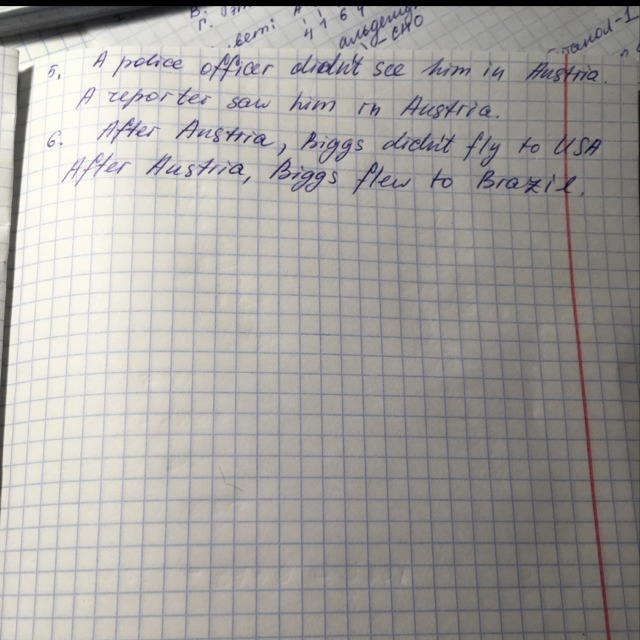 альдегид
-СНО
5. A police officer didn't see him in Austria.
A reporter saw him in Austria.
6. After Austria, Biggs didn't fly to USA
After Austria, Biggs flew to Brazil.